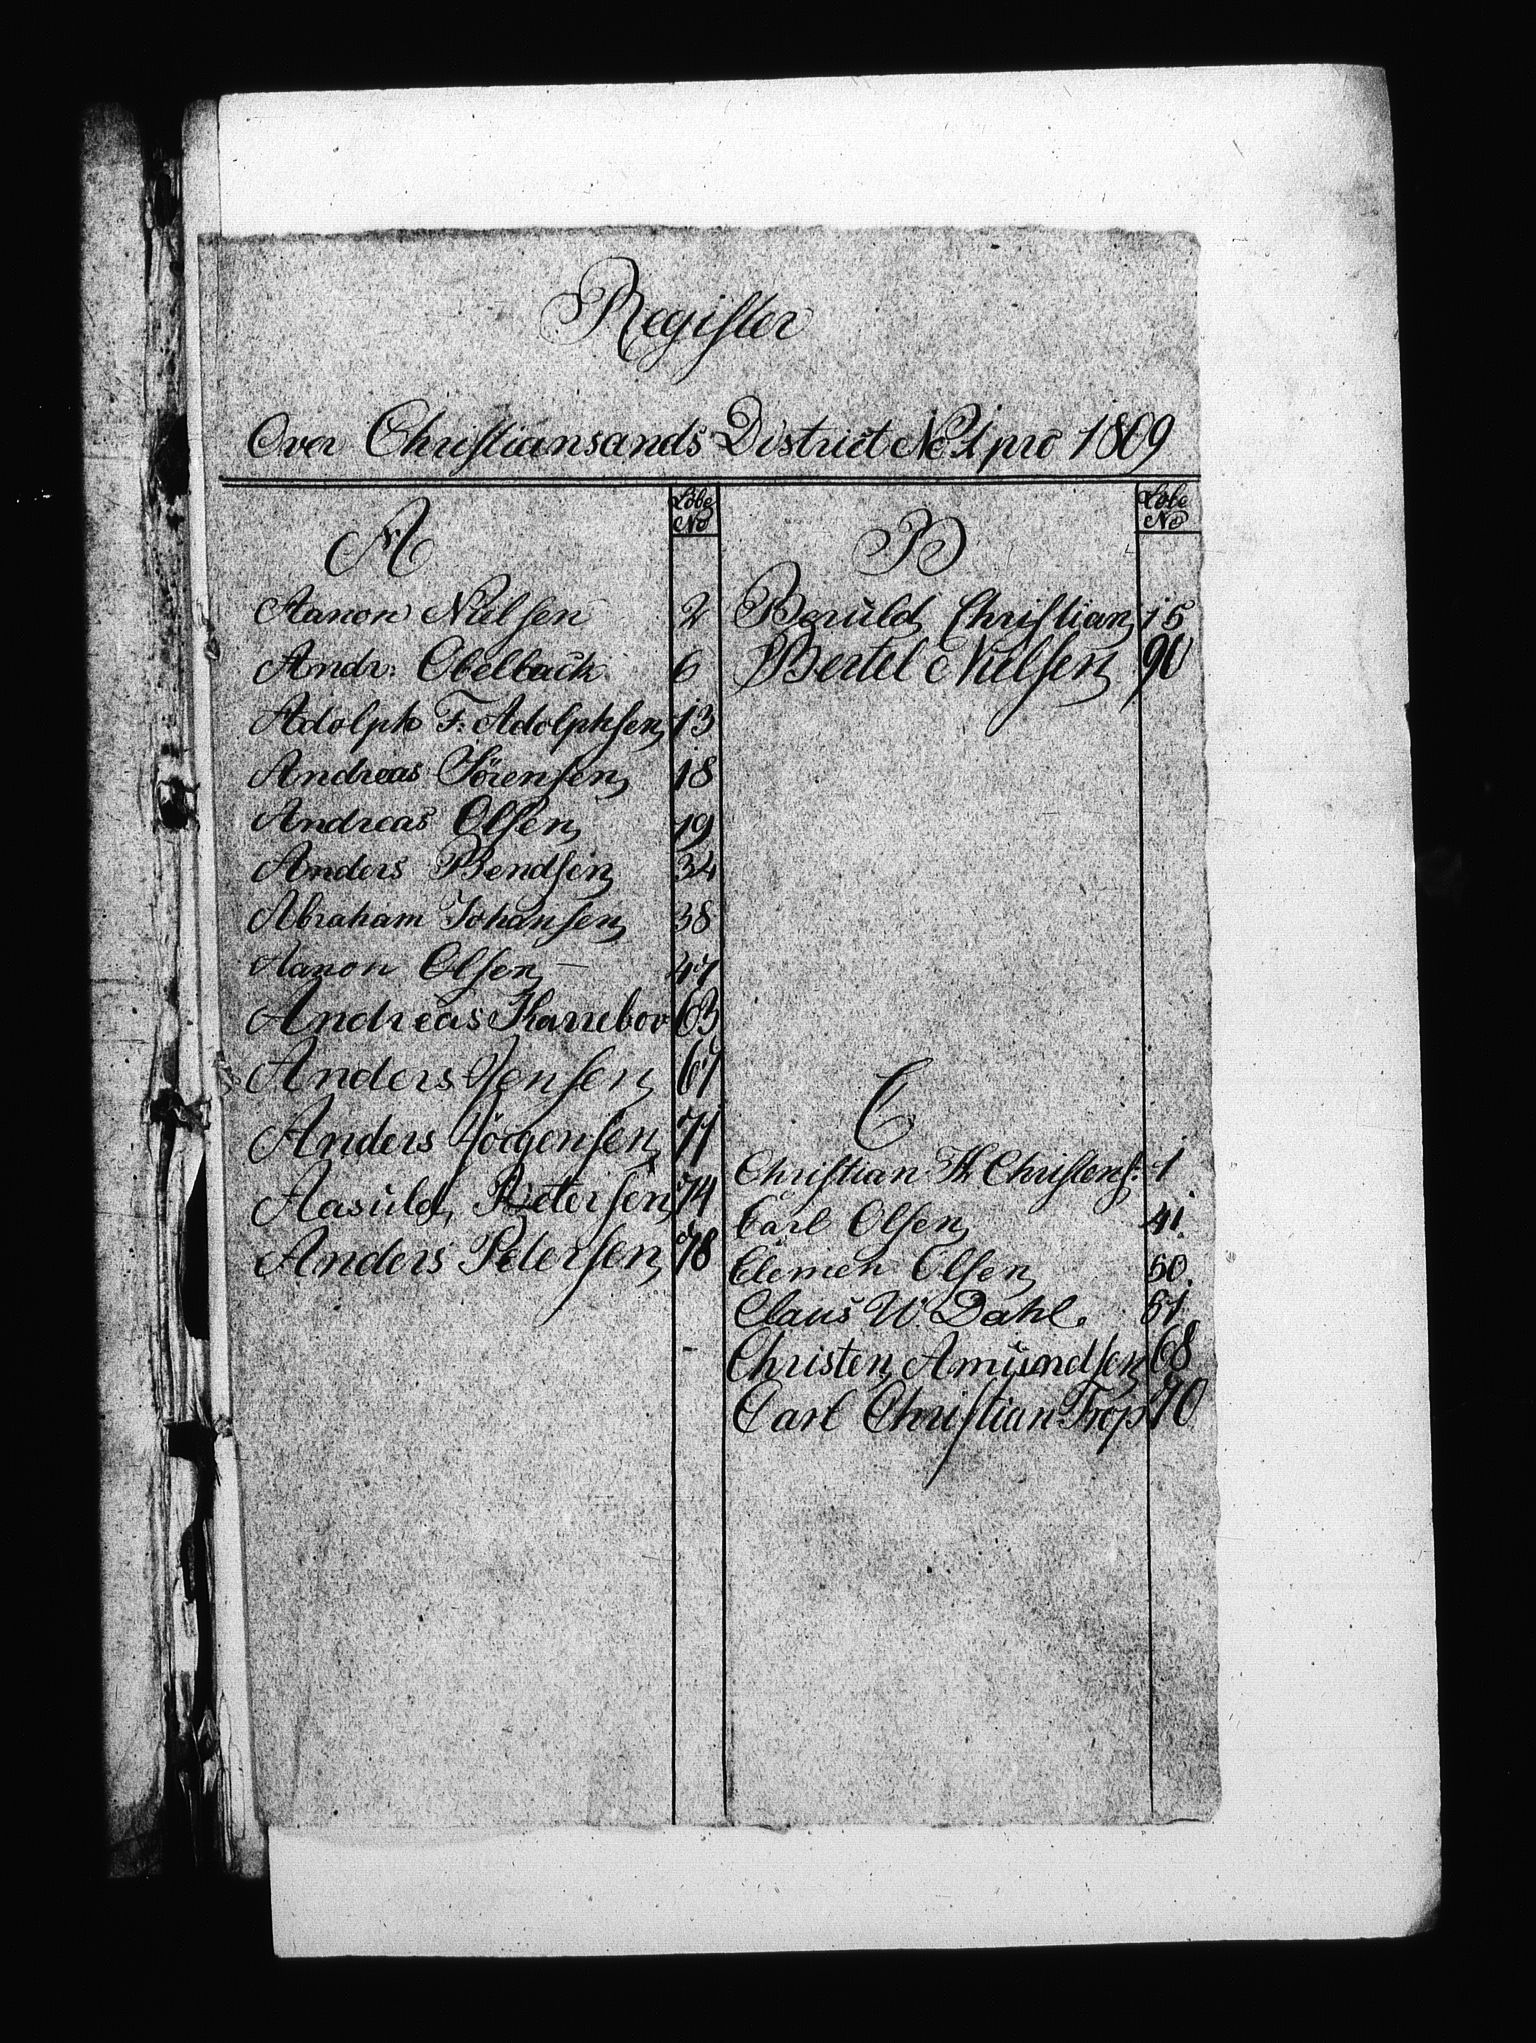 Register
Over Christiansands District No 1 pro 1809
A
Löbe
No
Aanon Nielsen 2
Andr: Obelback 6
Adolph F: Adolphsen 13
Andreas Sörensen 18
Andreas Olsen 19
Anders Bendsen 34
Abraham Johansen 38
Aanon Olsen 47
Andreas 63
Anders Jensen 67
Anders Jörgensen 71
Aasuld Petersen 74
Anders Petersen 78
B
Löbe
No
Beruld Christian 15
Bertel Nielsen 90
C
Christian Fk Christens: 1
Carl Olsen 41
Clemen Olsen 50
Claus W Dahl. 51
Christen Amundsen 68
Carl Christian Trop 70